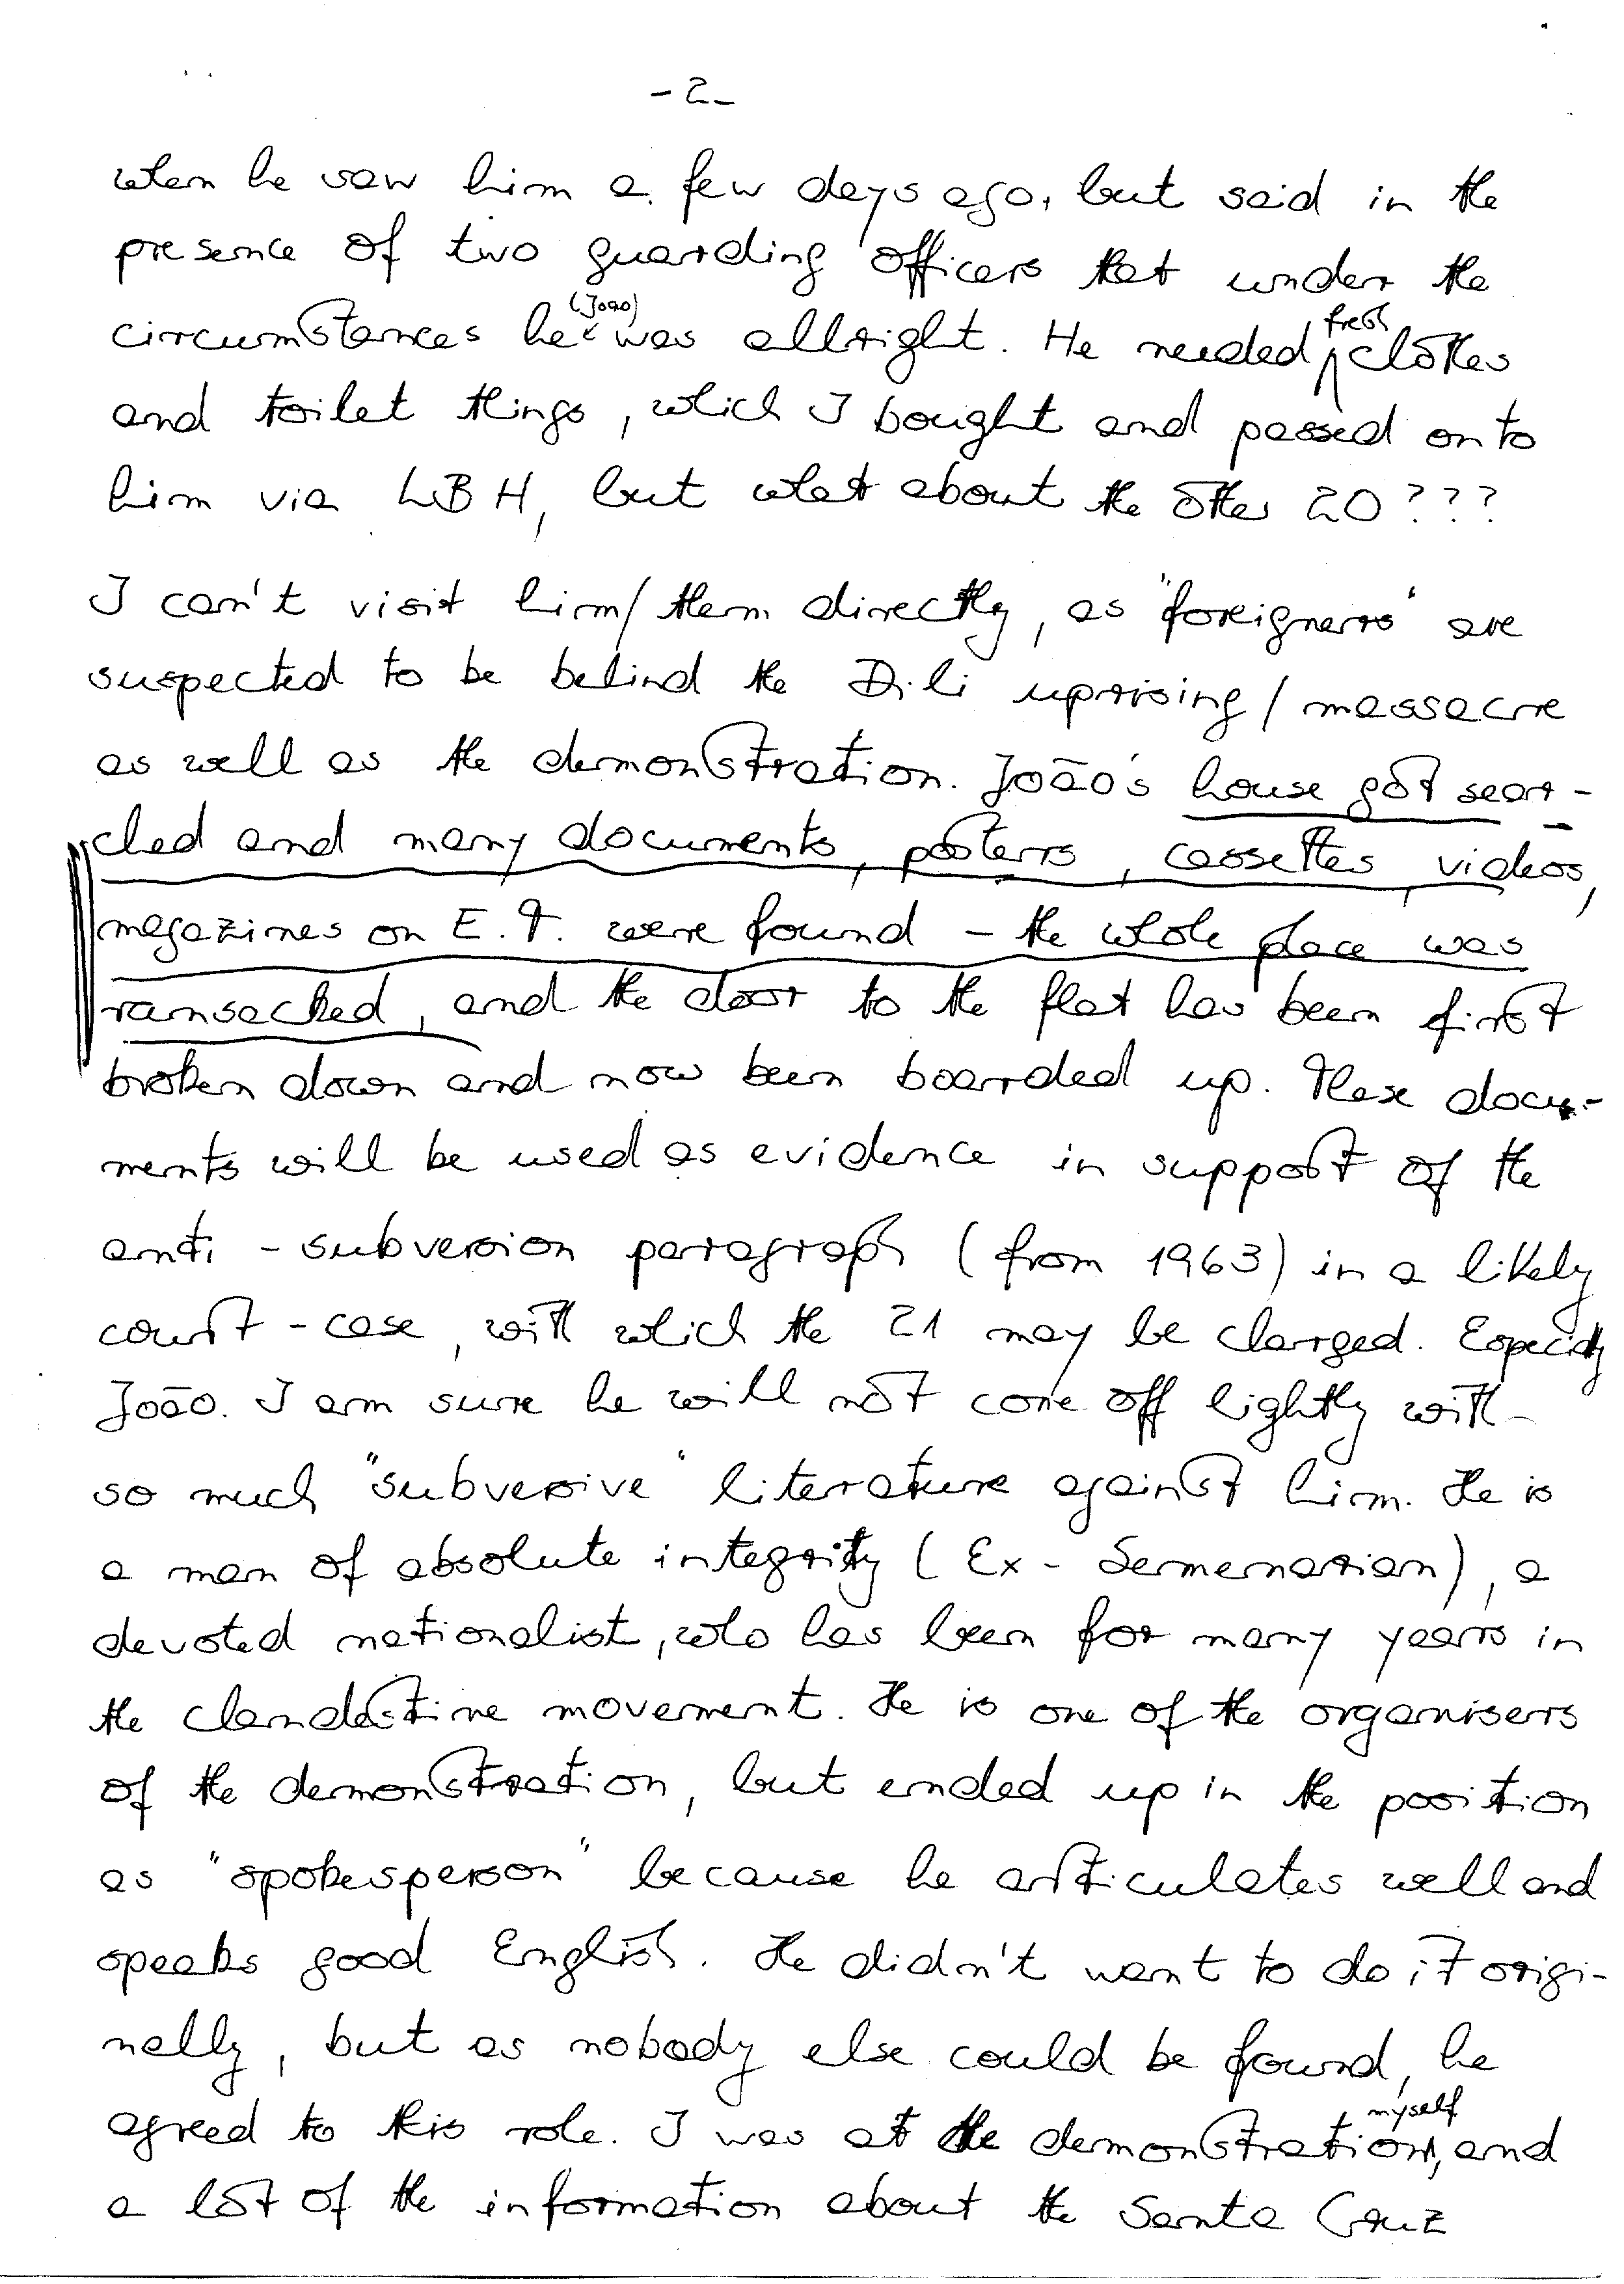 - 2 -
when he saw him a few days ago, but said in the
presence of two guarding officers that under the
circumstances he (João) was allright. He needed fresh clothes
and toilet things, which I bought and passed onto
him via LBH, but what about the other 20???
I can't visit him/them directly, as "foreigners" are
suspected to be behind the Dili uprising/massacre
as well as the demonstration. João's house got sear-
ched and many documents, posters, cassettes, videos,
magazines on E.T. were found - the whole place was
ransacked, and the door to the flat has been first
broken down and now been boarded up. These docu-
ments will be used as evidence in support of the
anti-subversion paragraph (from 1963) in a likely
court-case, with which the 21 may be charged. Especially
João. I am sure he will not come off lightly with
so much "subversive" literature against him. He is
a man of absolute integrity (Ex-Semernarian), a
devoted nationalist, who has been for many years in
the clandestine movement. He is one of the organisers
of the demonstration, but ended up in the position
as "spokesperson" because he articulates well and
speaks good English. He didn't want to do it origi-
nally, but as nobody else could be found, he
agreed to this role. I was at the demonstration myself, and
a lot of the information about the Santa Cruz